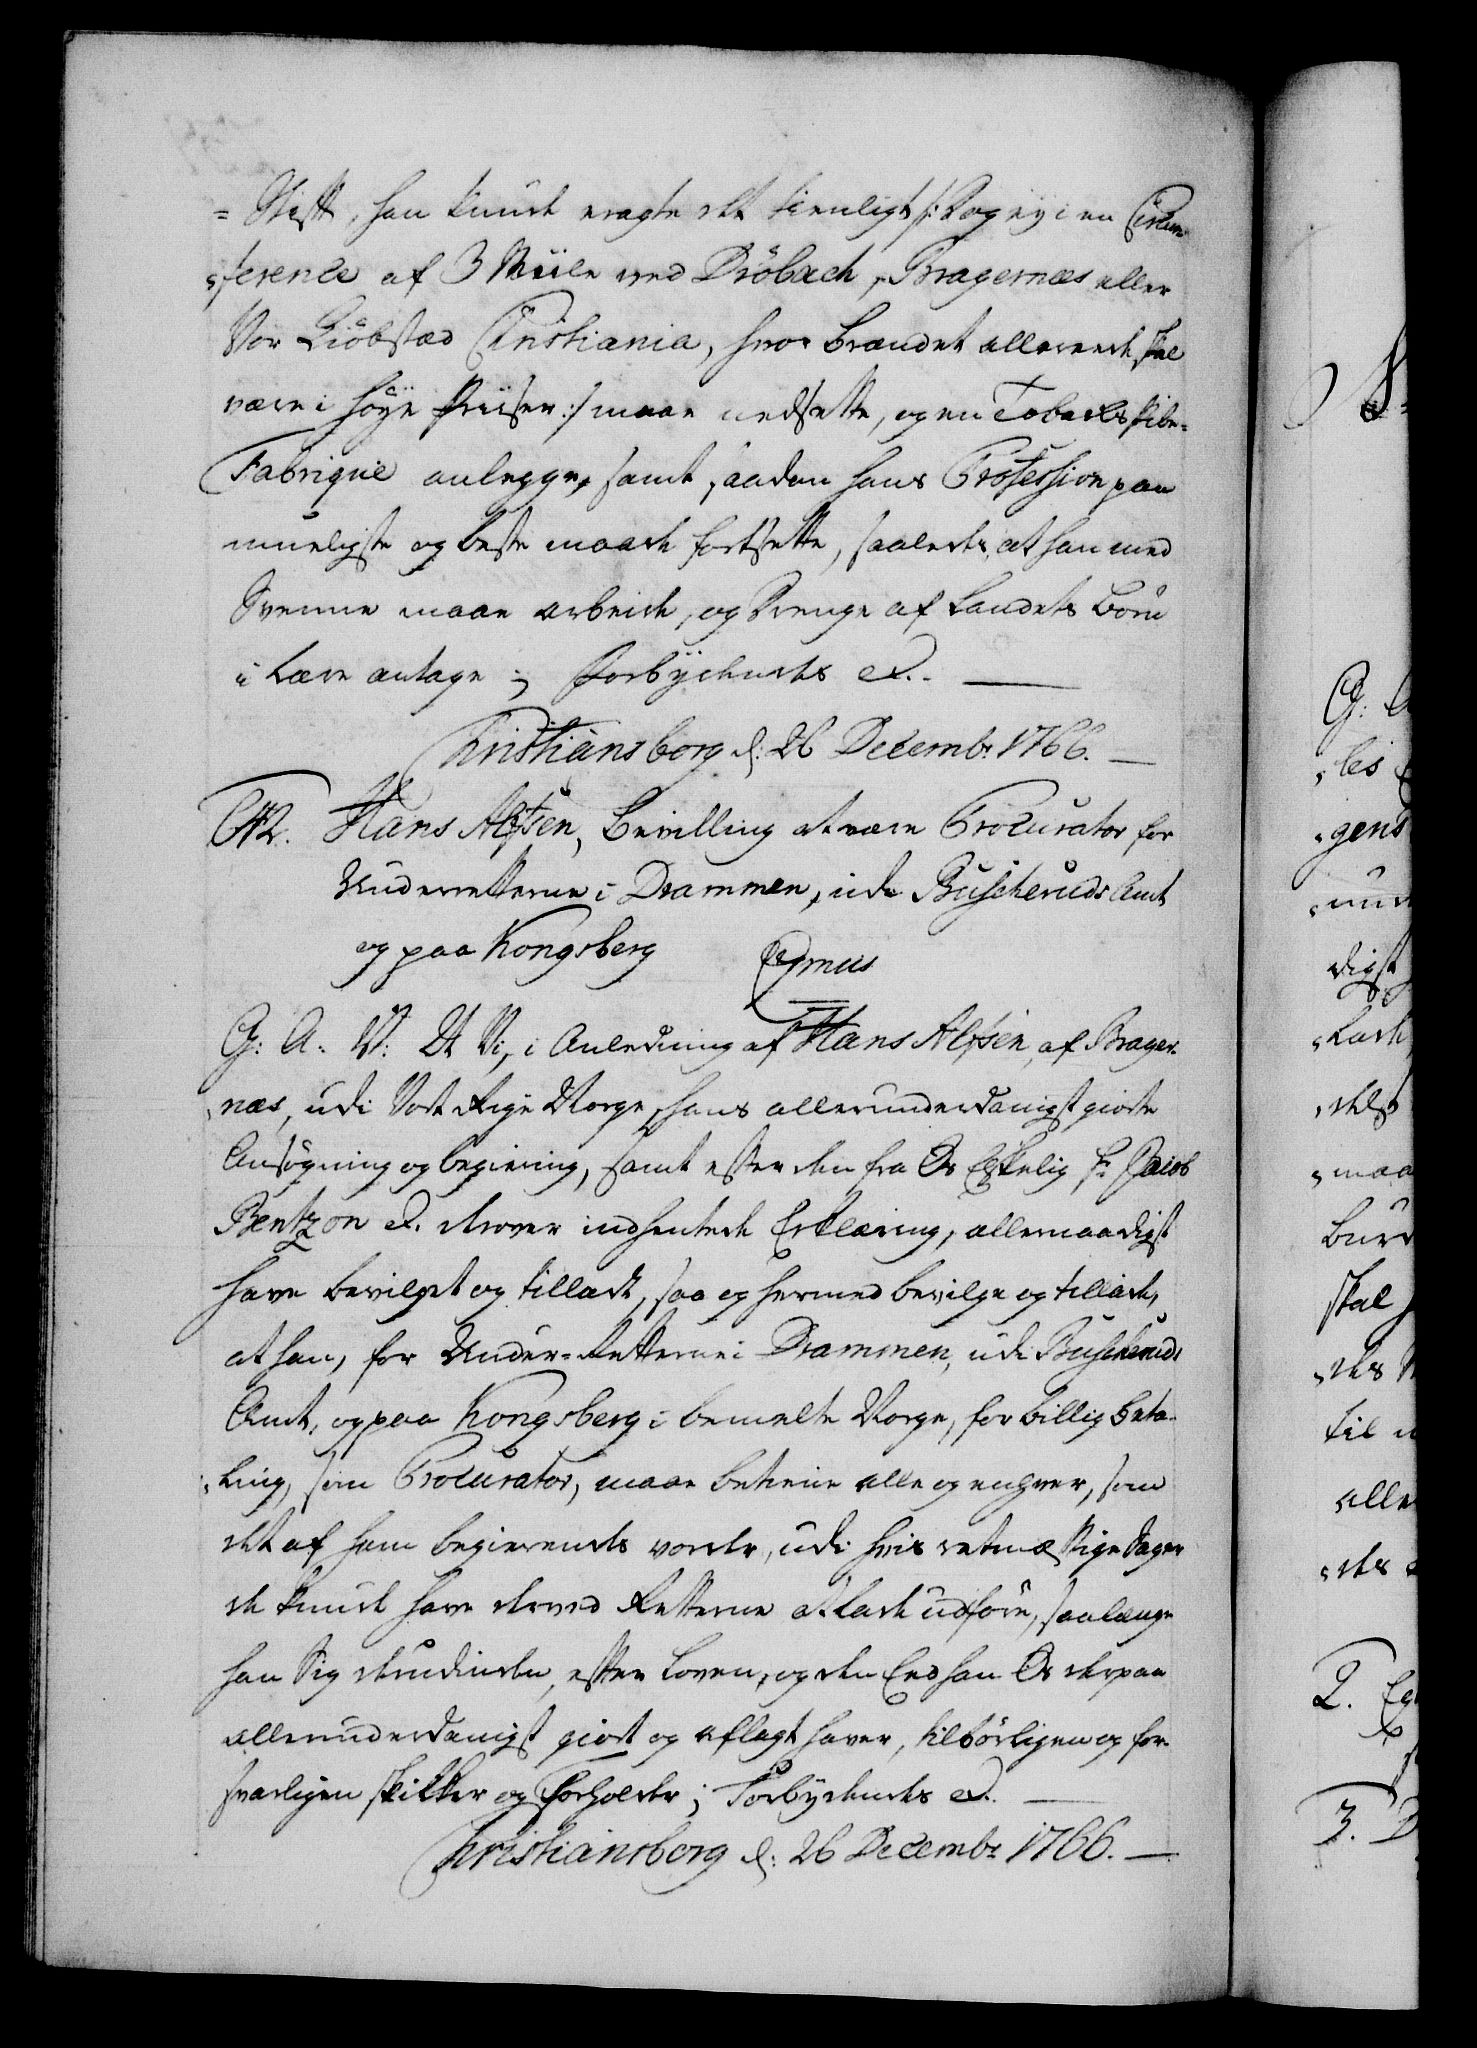 = Stift, han kunde eragte det tienligt /: dog ey i en Circum-
ference af 3 Miile ved Dröbach, Bragernæs eller
Vor Kiöbstæd Christiania, hvor Brændet allereede skal
være i høye Priiser :/ maae nedsette, og en Tobacks Pibe-
Fabriqve anlegge, samt saadan hans Profession paa
mueligste og beste maade fortsette, saaledes, at han med
Svenne maae arbeide, og Drenge af Landets Børn
i Lære antage ; Forbydendes etc. —
Christiansborg d: 26 Decembr 1766. —
Hans Alfsen, Bevilling at være Procurator for
Underretterne i Drammen, udi Buscheruds Amt
og paa Kongsberg
G: A: V: At Vi, i Anledning af Hans Alfsen, af Brager-
næs, udi Vort Rige Norge, hans allerunderdanigst giorte
Ansøgning og begiering, samt efter den fra Os Elskelig Hr Jacob
Bentzon etc. derover indhentede Erklæring, allernaadigst
have bevilget og tilladt, saa og hermed bevilge og tillade,
at han, for Under-Retterne i Drammen, udi Buscheruds
Amt, og paa Kongsberg i bemelte Norge, for billig beta-
ling, som Procurator, maae betiene alle og enhver, som
det af ham begierendes vorder, udi hvis retmæssige Sager
de kunde have derved Retterne at lade udføre, saalænge
han Sig derudinden, efter Loven, og den Eed han Os derpaa
allerunderdanigst giort og aflagt haver, tilbørligen og for-
svarligen skikker og forholder ; Forbydendes etc. —
Christiansborg d: 26 Decembr 1766. —